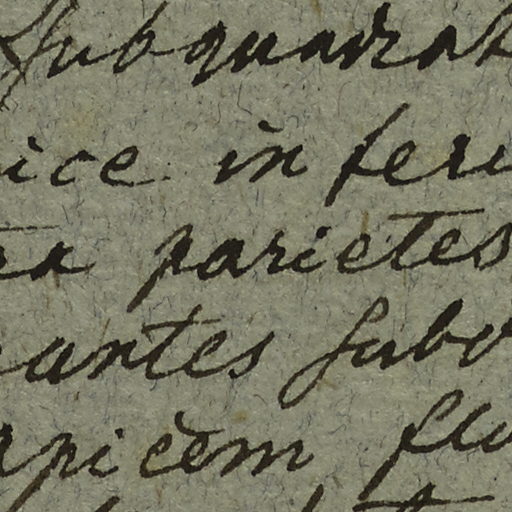 Subquadrat
ice in feri
ea parietes
cantes subo
apicem flo